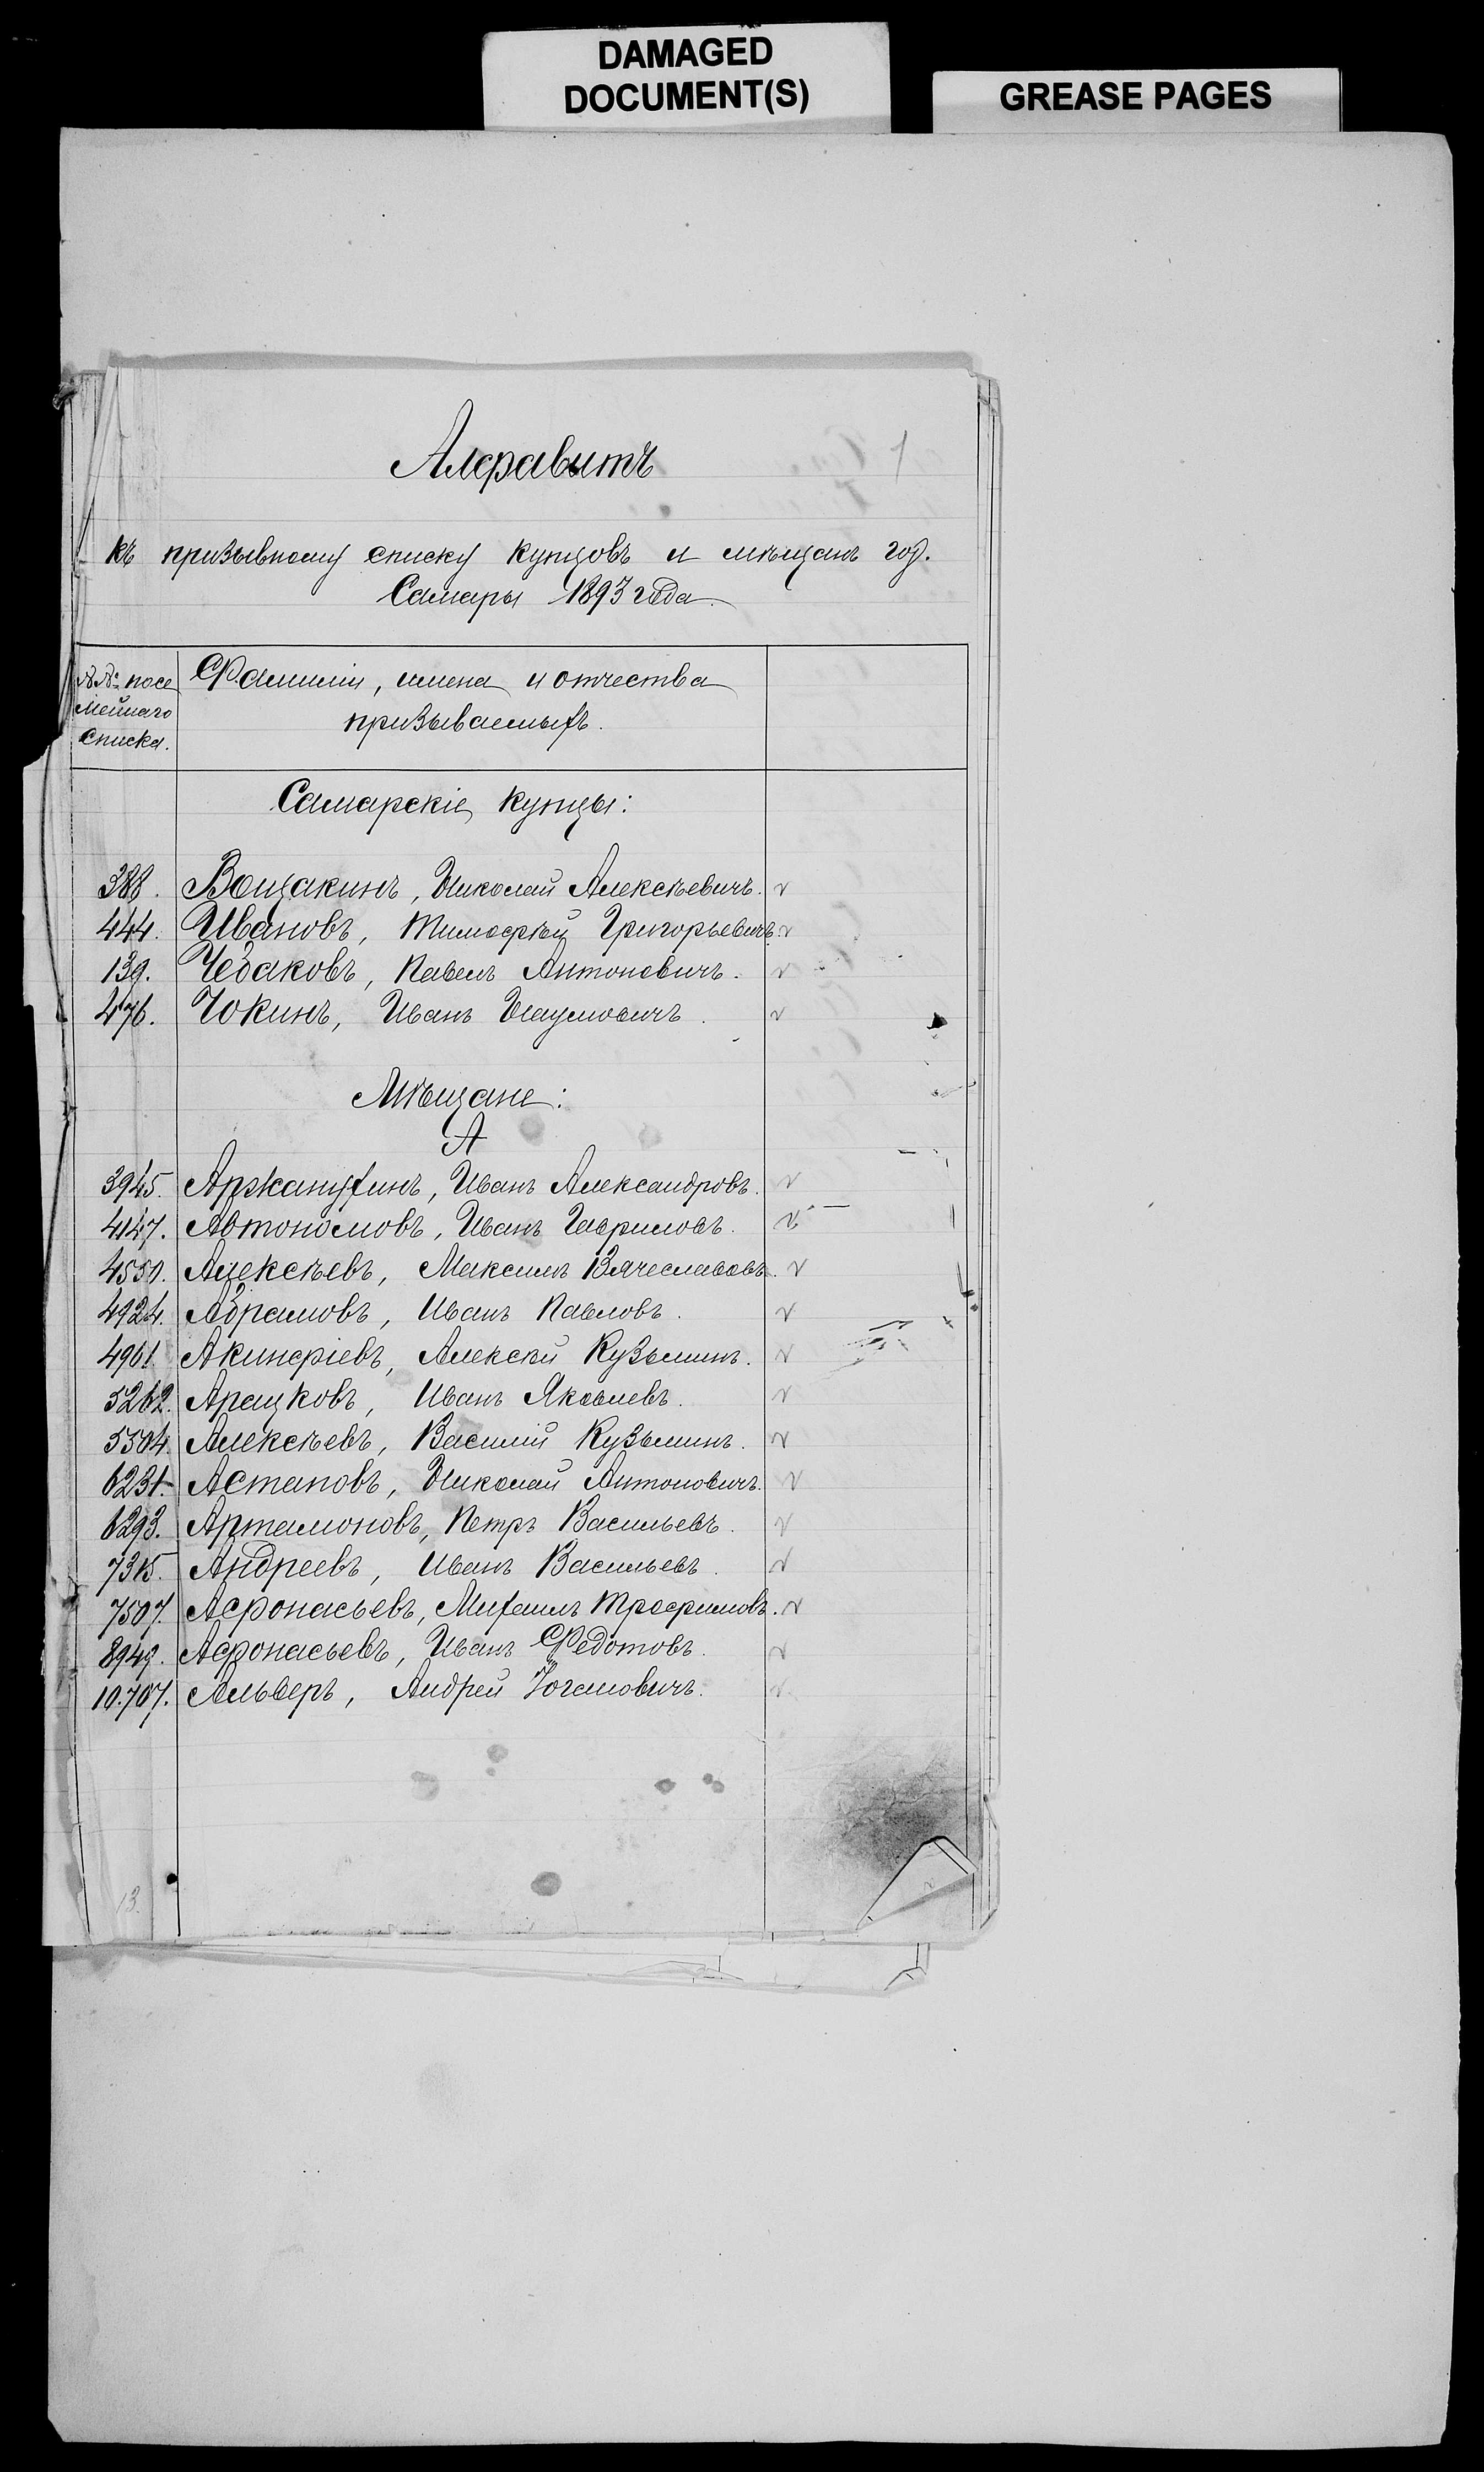 DAMAGED
DOCUMENT(S)
GREASE PAGES
1
Алфавитъ
къ призывному списку купцовъ и мѣщанъ гор.
Самары 1893 года.
№№ посе
мейнаго
списка.
Фамиліи, имена и отчества
призываемыхъ.
Самарскіе купцы:
388. Вощакинъ, Николай Алексѣевичъ. v
444. Ивановъ, Тимофѣй Григорьевичъ. v
139. Чебаковъ, Павелъ Антоновичъ. v
476. Чокинъ, Иванъ Наумовичъ. v
Мѣщане:
А
3945. Аржанухинъ, Иванъ Александровъ. v
4147. Автономовъ, Иванъ Гавриловъ. v
4550. Алексѣевъ, Максимъ Вячеславовъ. v
4924. Абрамовъ, Иванъ Павловъ. v
4961. Акинфіевъ, Алексѣй Кузьминъ. v
5262. Аращковъ, Иванъ Яковлевъ. v
5504. Алексѣевъ, Василій Кузьминъ. v
6231. Астаповъ, Николай Антоновичъ. v
6293. Артамоновъ, Петръ Васильевъ. v
7315. Андреевъ, Иванъ Васильевъ. v
7507. Афонасьевъ, Михаилъ Трофимовъ. v
8949. Афонасьевъ, Иванъ Федотовъ. v
10.707. Альберъ, Андрей Іогановичъ. v
13.